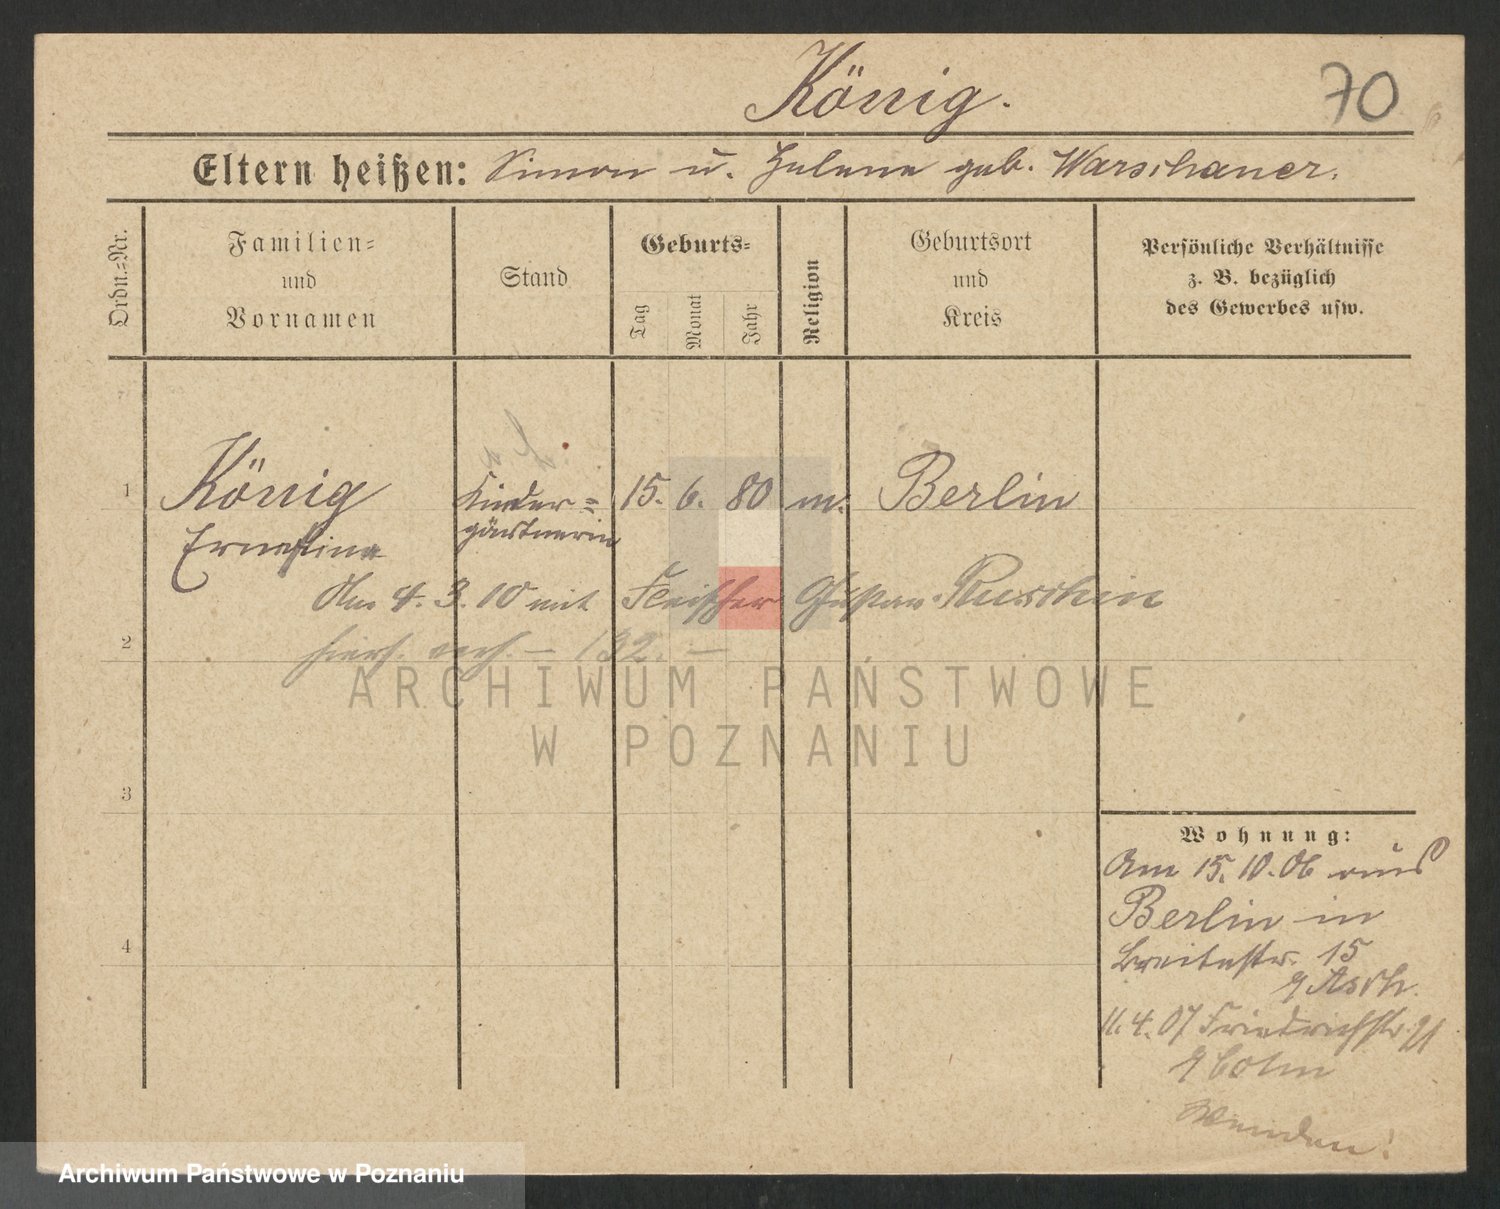 König.
70
Eltern heißen: Simon u. Helene geb. Warschauer.
Ordn.=Nr.
Familien=
und
Vornamen
Stand
Geburts=
Tag
Monat
Jahr
Religion
Geburtsort
und
Kreis
Persönliche Verhältnisse
z. B. bezüglich
des Gewerbes usw.
1 König Kinder= 15. 6. 80 m. Berlin
Ernestine gärtnerin
Am 4. 3. 10 mit Fleischer Gustav Ruschin
2 hiers. verh. — 132. —
ARCHIWUM PAŃSTWOWE
W POZNANIU
3
Wohnung:
Am 15. 10. 06 aus
Berlin in
Breitestr. 15
4
b Asch.
11. 4. 07 Friedrichstr.
b Cohn
Wenden!
Archiwum Państwowe w Poznaniu